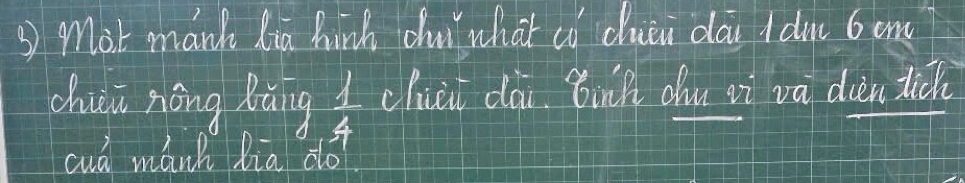 3) Một mảnh bìa hình chữ nhật có chiều dài 1dm 6 cm
chiều rộng bằng 1/4 chiều dài. Tính chu vi và diện tích
của mảnh bìa đó.